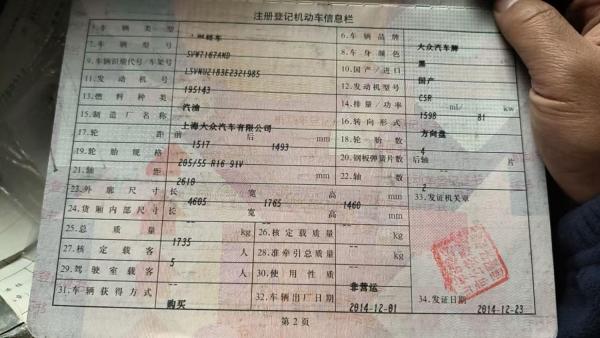 注册登记机动车信息栏
5.车辆类型 轿车 6.车辆品牌 大众汽车牌
7.车辆型号 SVW7167AMD 8.车身颜色 黑
9.车辆识别代号/车架号 LSVNU2183E2321985 10.国产/进口 国产
11.发动机号 195143 12.发动机型号 CSR
13.燃料种类 汽油 14.排量/功率 1598 ml/ 81 kw
15.制造厂名称 上海大众汽车有限公司 16.转向形式 方向盘
17.轮距 前 1517 后 1493 mm 18.轮胎数 4
19.轮胎规格 205/55 R16 91V 20.钢板弹簧片数 后轴 -- 片
21.轴距 2610 mm 22.轴数 2
23.外廓尺寸 长 4605 宽 1765 高 1460 mm 33.发证机关章
24.货厢内部尺寸 长 -- 宽 -- 高 -- mm
25.总质量 1735 kg 26.核定载质量 -- kg
27.核定载客 5 人 28.准牵引总质量 -- kg
29.驾驶室载客 -- 人 30.使用性质 非营运
31.车辆获得方式 购买 32.车辆出厂日期 2014-12-01 34.发证日期 2014-12-23
第2页